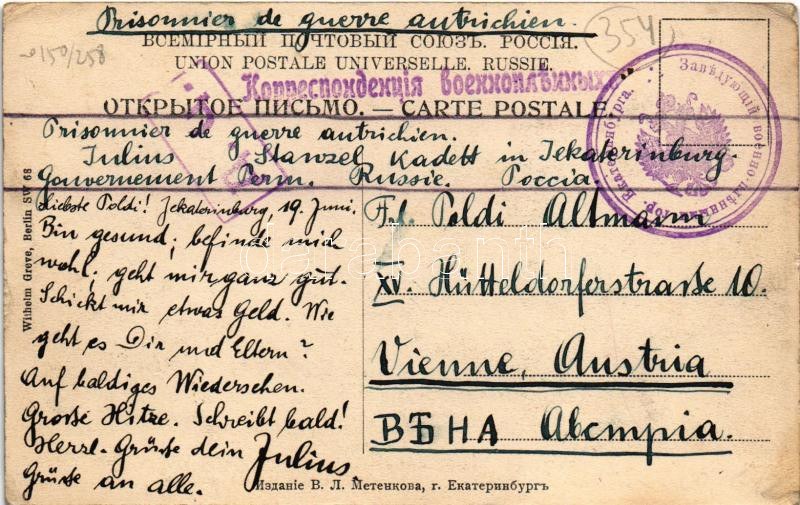 Prisonnier de guerre autrichien.
354
150/258
ВСЕМІРНЫЙ ПОЧТОВЫЙ СОЮЗЪ. РОССІЯ.
UNION POSTALE UNIVERSELLE. RUSSIE.
Корреспонденція военноплѣнныхъ
ОТКРЫТОЕ ПИСЬМО. — CARTE POSTALE
Завѣдующій военно-плѣнными гор. Екатеринбурга.
Prisonnier de guerre autrichien.
Julius Stanzel Kadett in Jekaterinburg.
Gouvernement Perm. Russie. Россіа.
Liebste Poldi! Jekaterinburg, 19. Juni.
Bin gesund; befinde mich
wohl; geht mir ganz gut.
Schickt mir etwas Geld. Wie
geht es Dir und Eltern?
Auf baldiges Wiedersehen.
Grosse Hitze. Schreibt bald!
Herzl. Grüsse dein Julius.
Grüsse an alle.
Frl Poldi Altmann
XV. Hütteldorferstrasse 10.
Vienne, Austria
ВѢНА Австрія.
Wilhelm Greve, Berlin SW 68
Изданіе В. Л. Метенкова, г. Екатеринбургъ
darabanth